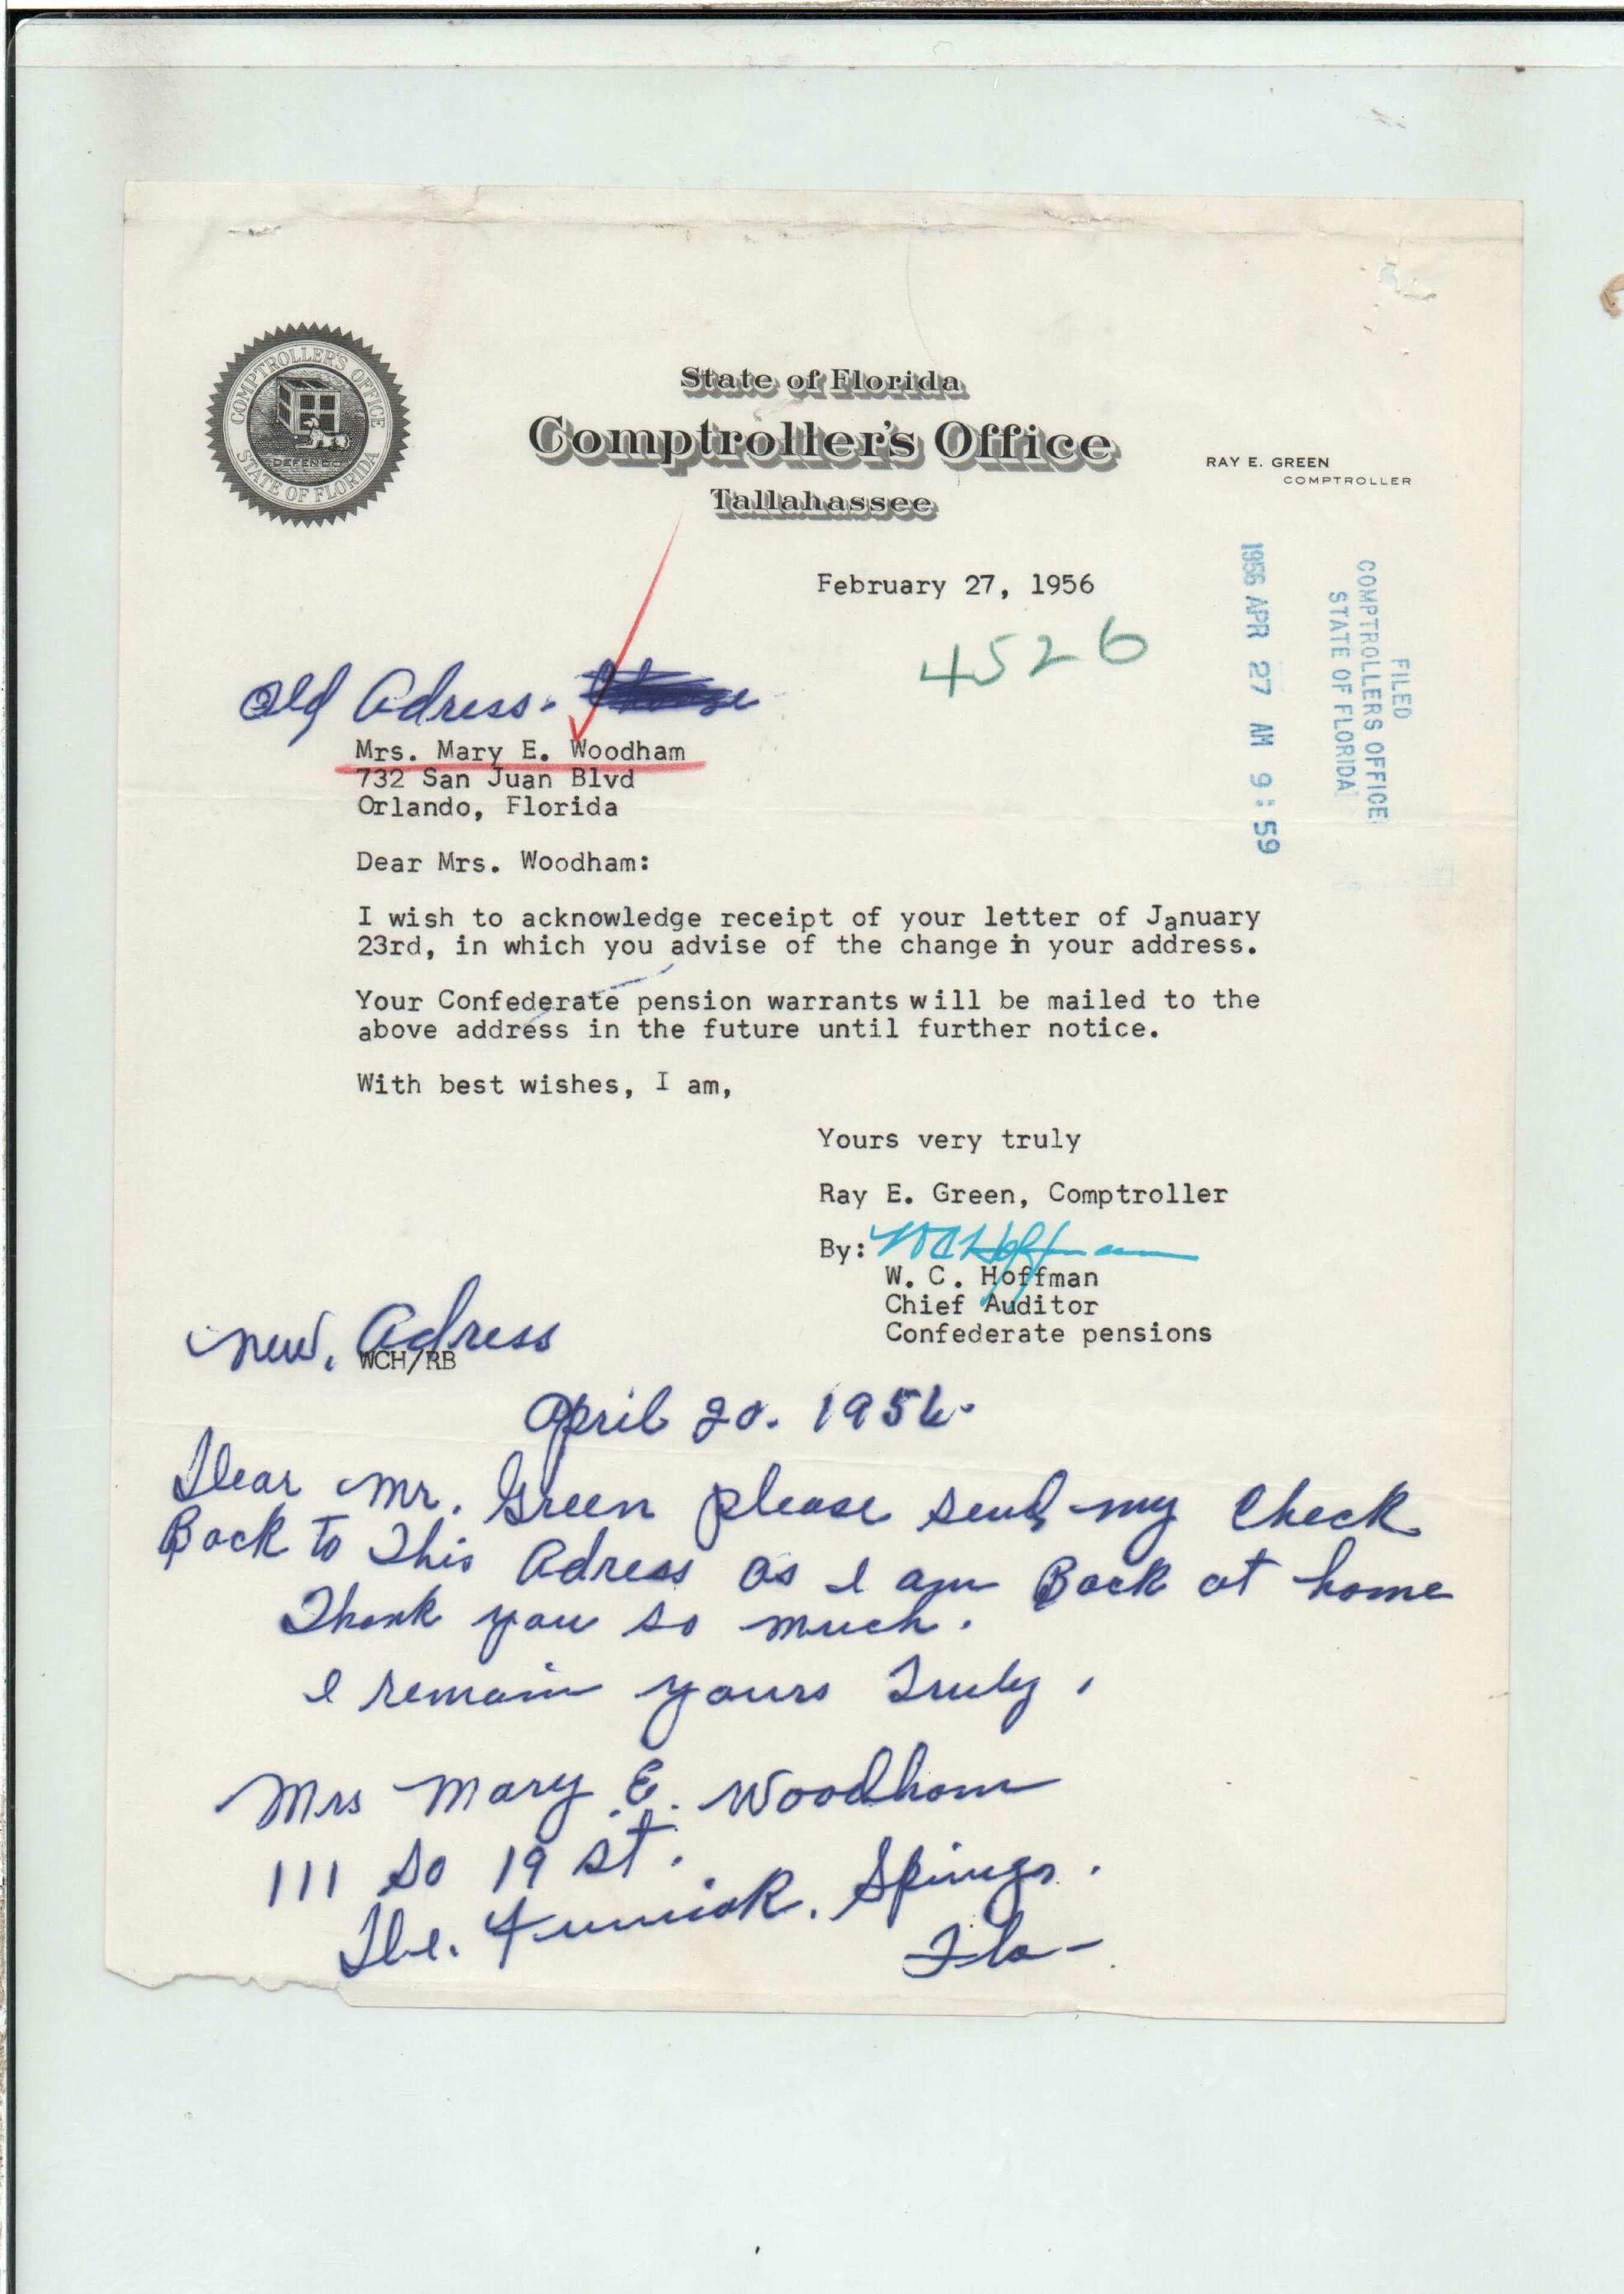 COMPTROLLER'S OFFICE
DEFENDO
STATE OF FLORIDA
State of Florida
Comptroller's Office
Tallahassee
RAY E. GREEN
COMPTROLLER
February 27, 1956
4526
FILED
COMPTROLLERS OFFICE
STATE OF FLORIDA
1956 APR 27 AM 9:59
Old Adress.
Mrs. Mary E. Woodham
732 San Juan Blvd
Orlando, Florida
Dear Mrs. Woodham:
I wish to acknowledge receipt of your letter of January
23rd, in which you advise of the change in your address.
Your Confederate pension warrants will be mailed to the
above address in the future until further notice.
With best wishes, I am,
Yours very truly
Ray E. Green, Comptroller
By: WC Hoffman
W. C. Hoffman
Chief Auditor
Confederate pensions
new. Adress
WCH/RB
April 20. 1956.
Dear Mr. Green please send my Check
Back to This Adress as I am Back at home
Thank you so much.
I remain yours Truly,
Mrs Mary E. Woodham
111 So 19 St.
De. Funiak. Springs.
Fla-